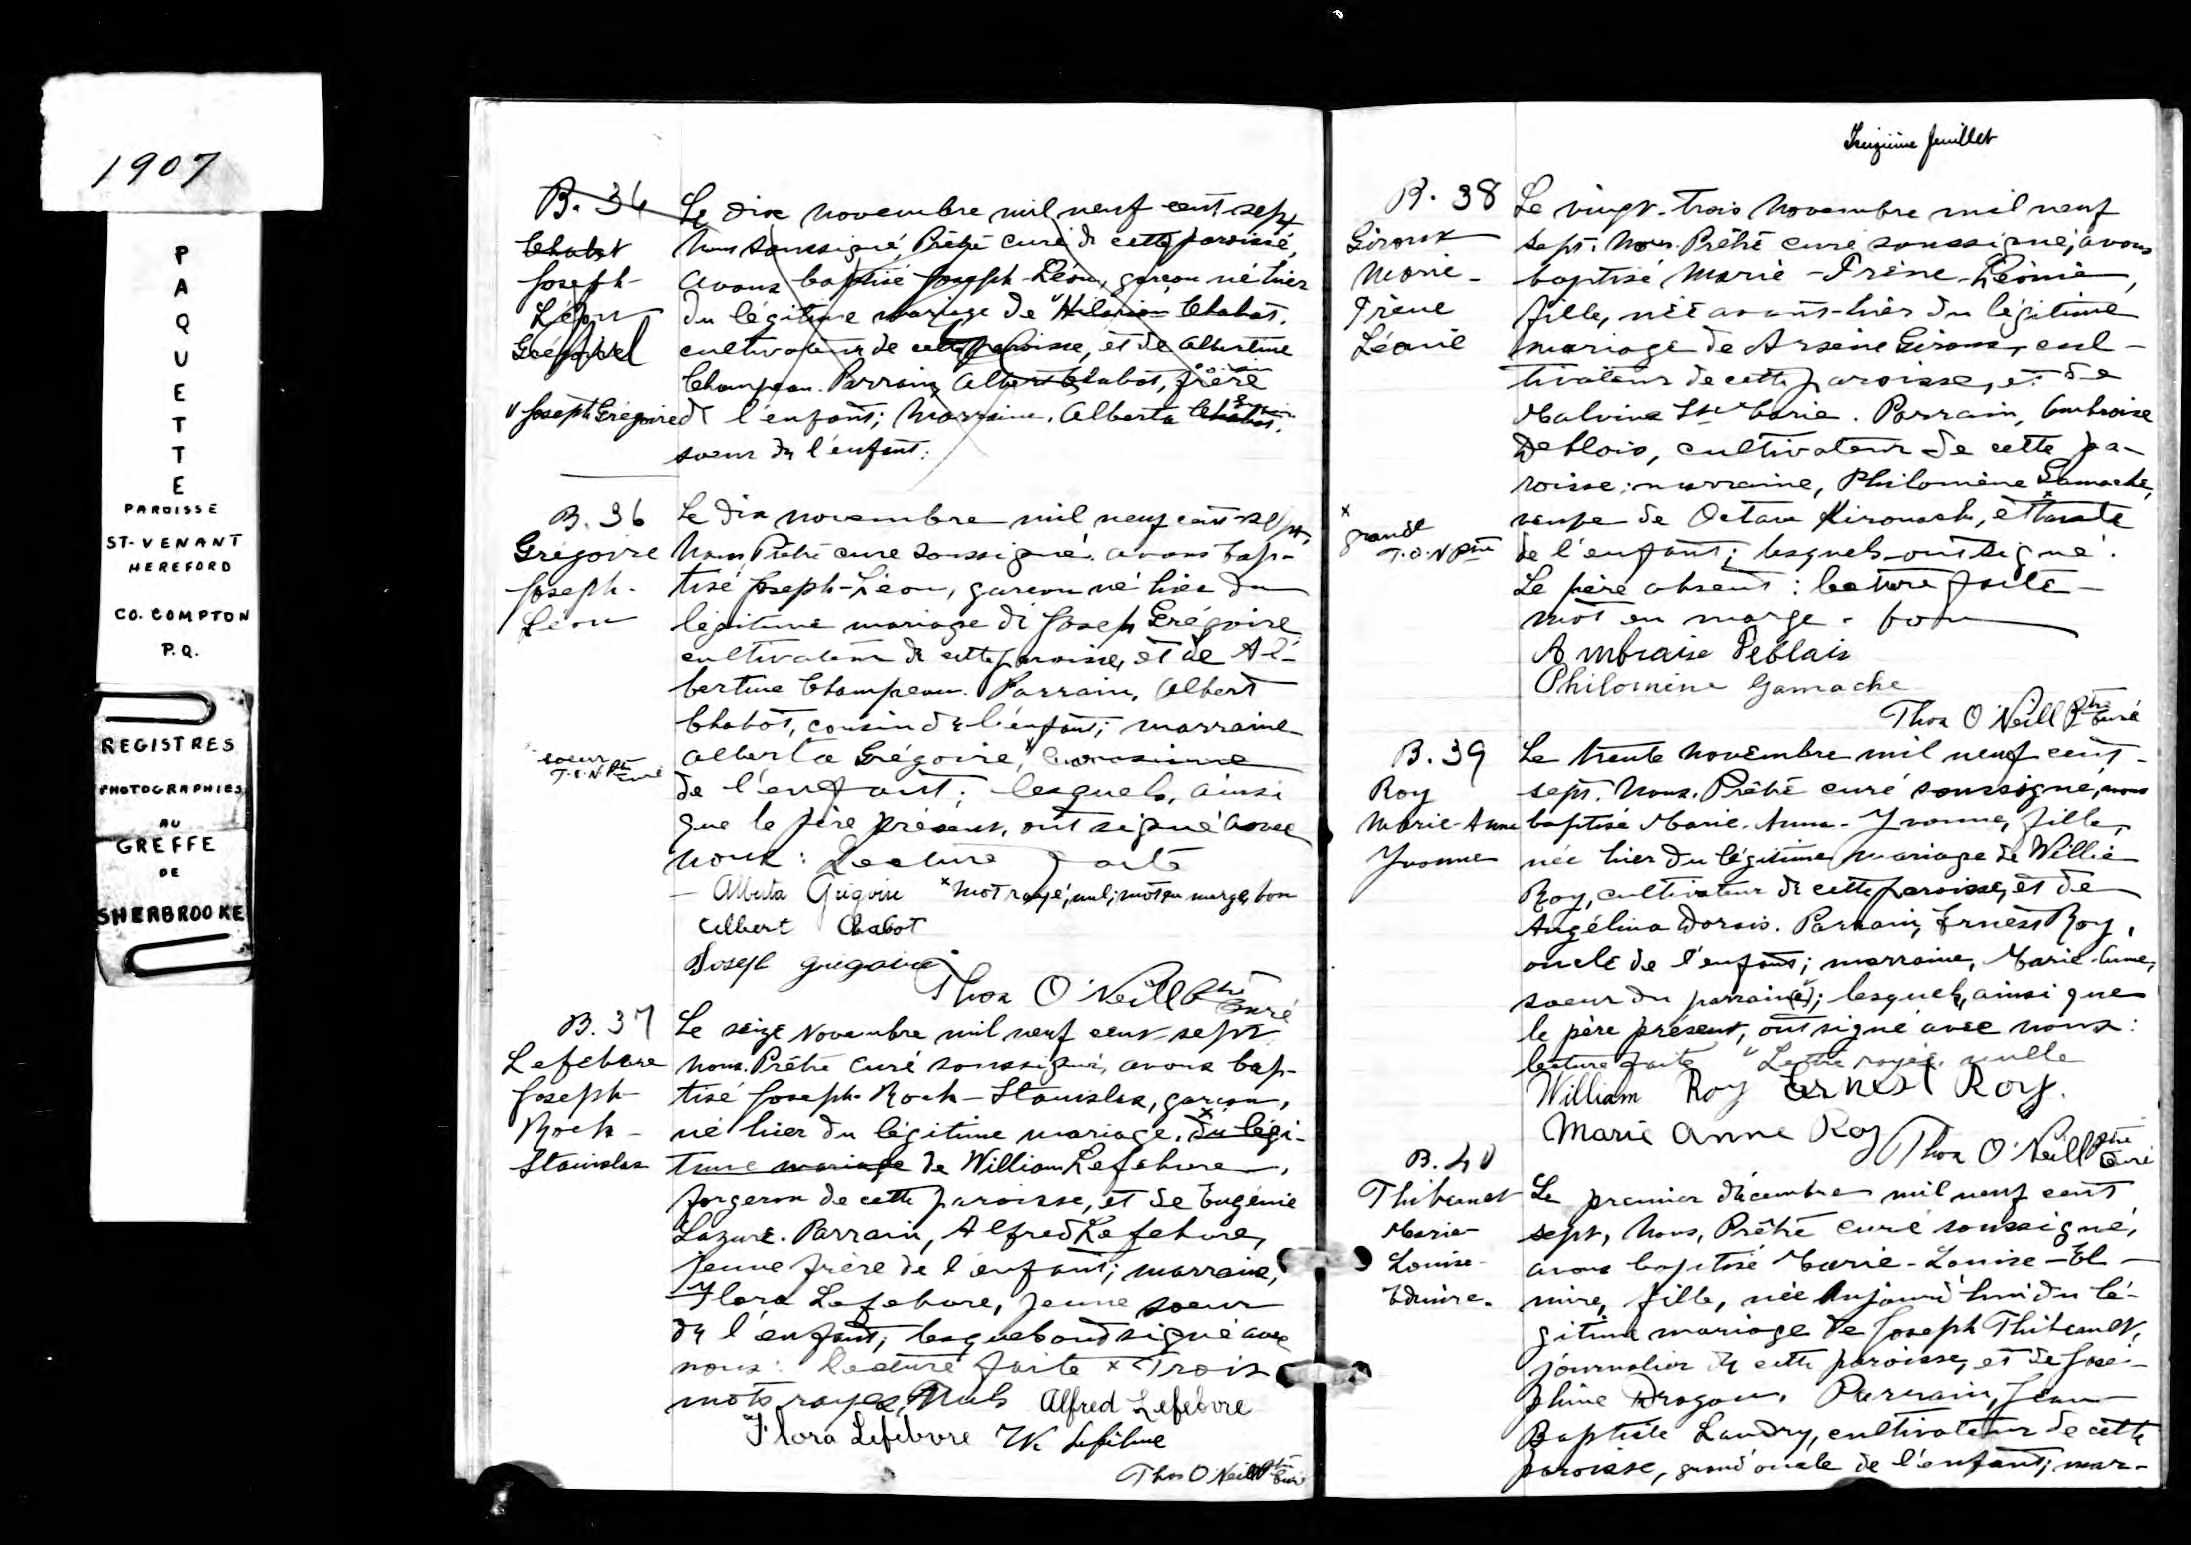 1907
PAQUETTE
PAROISSE
ST-VENANT
HEREFORD
CO. COMPTON
P.Q.
REGISTRES
PHOTOGRAPHIES
AU
GREFFE
DE
SHERBROOKE
B. 36
Chabot
Joseph-
Léon
v Joseph Grégoire
Le dix novembre mil neuf cent-sept
Nous soussigné, Prêtre curé de cette paroisse,
avons baptisé Joseph-Léon, garçon né hier
du légitime mariage de Hilarion Chabot,
cultivateur de cette paroisse, et de Albertine
Champeau. Parrain, Albert Chabot, frère
de l'enfant; Marraine, Alberta Chabot,
soeur de l'enfant.
B. 36
Grégoire
Joseph-
Léon
soeur
T.O.N. Ptre curé
Le dix novembre mil neuf cent sept,
Nous, Prêtre curé soussigné, avons bap-
tisé Joseph-Léon, garçon né hier du
légitime mariage de Joseph Grégoire
cultivateur de cette paroisse, et de Al-
bertine Champeau. Parrain, Albert
Chabot, cousin de l'enfant; marraine
Alberta Grégoire,
de l'enfant; lesquels, ainsi
que le père présent, ont signé avec
nous: Lecture faite
Alberta Grégoire x mot rayé, nul; mot en marge, bon
Albert Chabot
Joseph Grégoire
Thos O'Neill Ptre Curé
B. 37
Lefebvre
Joseph-
Roch-
Stanislas
Le seize Novembre mil neuf cent-sept
nous, Prêtre Curé soussigné, avons bap-
tisé Joseph-Roch-Stanislas, garçon,
né hier du légitime mariage, x du légi-
time mariage de William Lefebvre,
forgeron de cette paroisse, et de Eugénie
Lazure. Parrain, Alfred Lefebvre,
jeune frère de l'enfant; marraine,
Flora Lefebvre, jeune soeur
de l'enfant; lesquels ont signé avec
nous: Lecture faite x Trois
mots rayés, Nuls Alfred Lefebvre
Flora Lefebvre W. Lefebvre
Thos O'Neill Ptre Curé
Treizième feuillet
B. 38
Giroux
Marie-
Irène
Léonie
x
grande
T.O.N Ptre
Le vingt-trois Novembre mil neuf
sept. Nous, Prêtre curé soussigné, avons
baptisé Marie-Irène-Léonie,
fille, née avant-hier du légitime
mariage de Arsène Giroux, cul-
tivateur de cette paroisse, et de
Malvina Ste Marie. Parrain, Ambroise
Deblois, cultivateur de cette pa-
roisse; marraine, Philomène Gamache,
veuve de Octave Kirouack, et x tante
de l'enfant; lesquels ont signé.
Le père absent: lecture faite-
mot en marge. bon
Ambroise Deblais
Philomène Gamache
Thos O'Neill Ptre Curé
B. 39
Roy
Marie-Anne
Yvonne
Le trente Novembre mil neuf cent-
sept. Nous, Prêtre curé soussigné, avons
baptisé Marie-Anna-Yvonne, fille,
née hier du légitime mariage de Willie
Roy, cultivateur de cette paroisse, et de
Angélina Dorais. Parrain, Ernest Roy,
oncle de l'enfant; marraine, Marie-Anne,
soeur du parrain; lesquels, ainsi que
le père présent, ont signé avec nous:
lecture faite v Lettre rayée, nulle
William Roy Ernest Roy.
Marie Anne Roy Thos O'Neill Ptre Curé
B. 40
Thibeault
Marie
Louise-
Le premier décembre mil neuf cent
sept, Nous, Prêtre curé soussigné,
avons baptisé Marie-Louise-El-
mire, fille, née Aujourd'hui du lé-
gitime mariage de Joseph Thibeault,
journalier de cette paroisse, et de José-
phine Dragon. Parrain, Jean
Baptiste Landry, cultivateur de cette
paroisse, grand'oncle de l'enfant; mar-